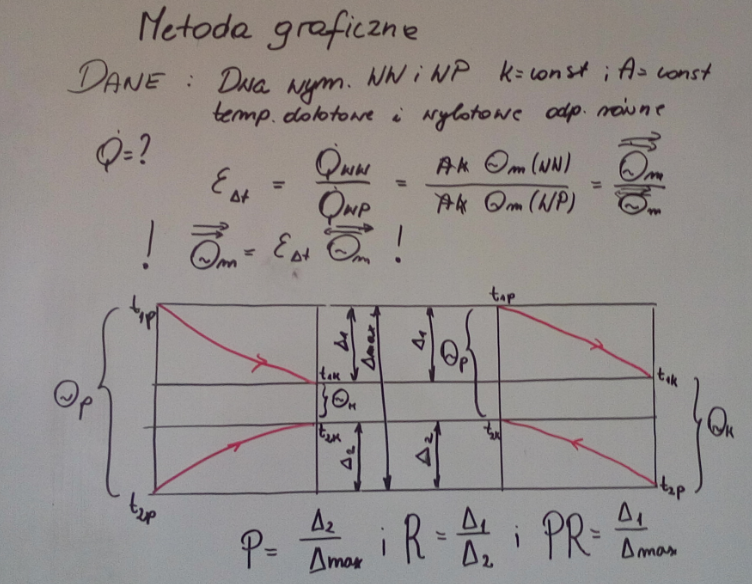 Metoda graficzne
DANE : Dwa wym. WW i WP k=const ; A=const
temp. dolotowe i wylotowe odp. równe
Q̇=?
ε_Δt = Q̇_WW / Q̇_WP = Ak Θm (WW) / Ak Θm (WP) = Θm / Θm
! Θm = ε_Δt Θm !
t1p t1p
Δ1 Δmax Δ1 Θp
t1k t1k
Θp Θk Θk
t2k t2k
Δ2 Δ2
t2p t2p
P = Δ2 / Δmax ; R = Δ1 / Δ2 ; PR = Δ1 / Δmax